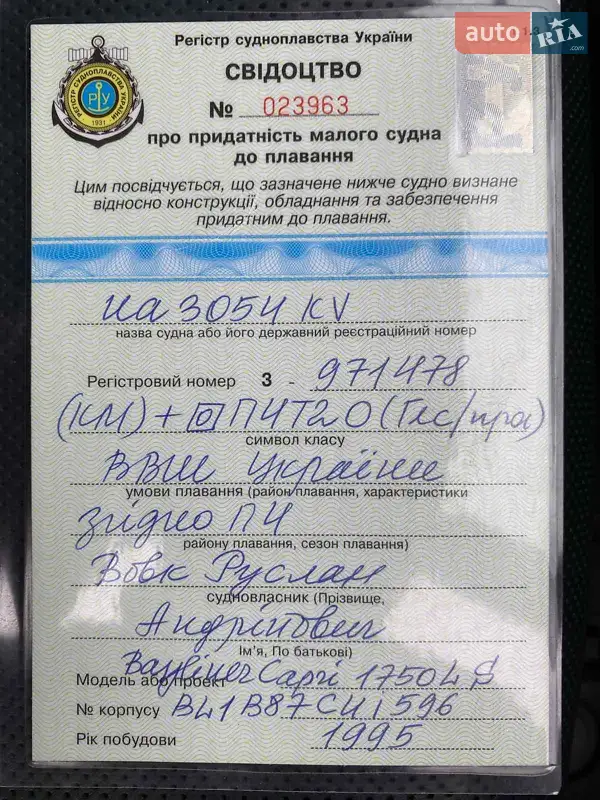 auto RIA .com
Регістр судноплавства України
РЕГІСТР СУДНОПЛАВСТВА УКРАЇНИ
РУ
1931
СВІДОЦТВО
№ 023963
про придатність малого судна
до плавання
Цим посвідчується, що зазначене нижче судно визнане
відносно конструкції, обладнання та забезпечення
придатним до плавання.
иа 3054 KV
назва судна або його державний реєстраційний номер
Регістровий номер 3 - 971478
(КМ) + П4Т20
символ класу
ВВШ України
умови плавання (район плавання, характеристики
згідно П4
району плавання, сезон плавання)
Вовк Руслан
судновласник (Прізвище,
Андрійович
Ім'я, По батькові)
Модель або проект Bayliner Capri 1750 LS
№ корпусу
Рік побудови 1995